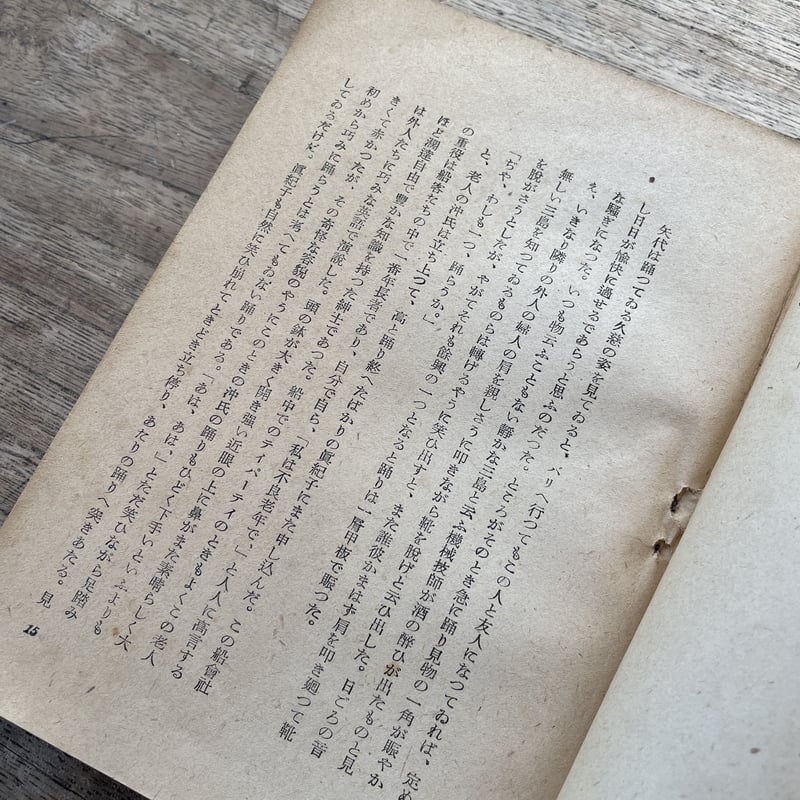 矢代は踊つてゐる久慈の姿を見てゐると、パリへ行つてもこの人と友人になつてゐれば、定め
し日日が愉快に過せるであらうと思ふのだつた。ところがそのとき急に踊り見物の一角が賑やか
な騒ぎになつた。いつも物云ふこともない靜かな三島と云ふ機械技師が酒の醉ひが出たものと見
え、いきなり隣りの外人の婦人の肩を親しさうに叩きながら靴を脱げと云ひ出した。日ごろの音
無しい三島を知つてゐるものらは轉げるやうに笑ひ出すと、また誰彼かまはず肩を叩き廻つて靴
を脱がさうとしたが、やがてそれも餘興の一つとなると踊りは一層甲板で賑つた。
「ぢや、わしも一つ、踊らうか。」
と、老人の沖氏は立ち上つて、高と踊り終へたばかりの眞紀子にまた申し込んだ。この船會社
の重役は船客たちの中で一番年長者であり、自分で自ら、「私は不良老年で、」と人人に高言する
ほど濶達自由で豐かな知識を持つた紳士であつた。船中でのティパーティのときもよくこの老人
は外人たちに巧みな英語で演說した。頭の鉢が大きく開き强い近眼の上に鼻がまた素晴らしく大
きくて赤かつたが、その奇怪な容貌のやうにこのときの沖氏の踊りもひどく下手いといふよりも
初めから巧みに踊らうとは考へてもゐない踊りである。「あは、あは、」とただ笑ひながら足踏み
してゐるだけだ。眞紀子も自然に笑ひ崩れてときどき立ち停り、あたりの踊りへ突きあたる。見
15